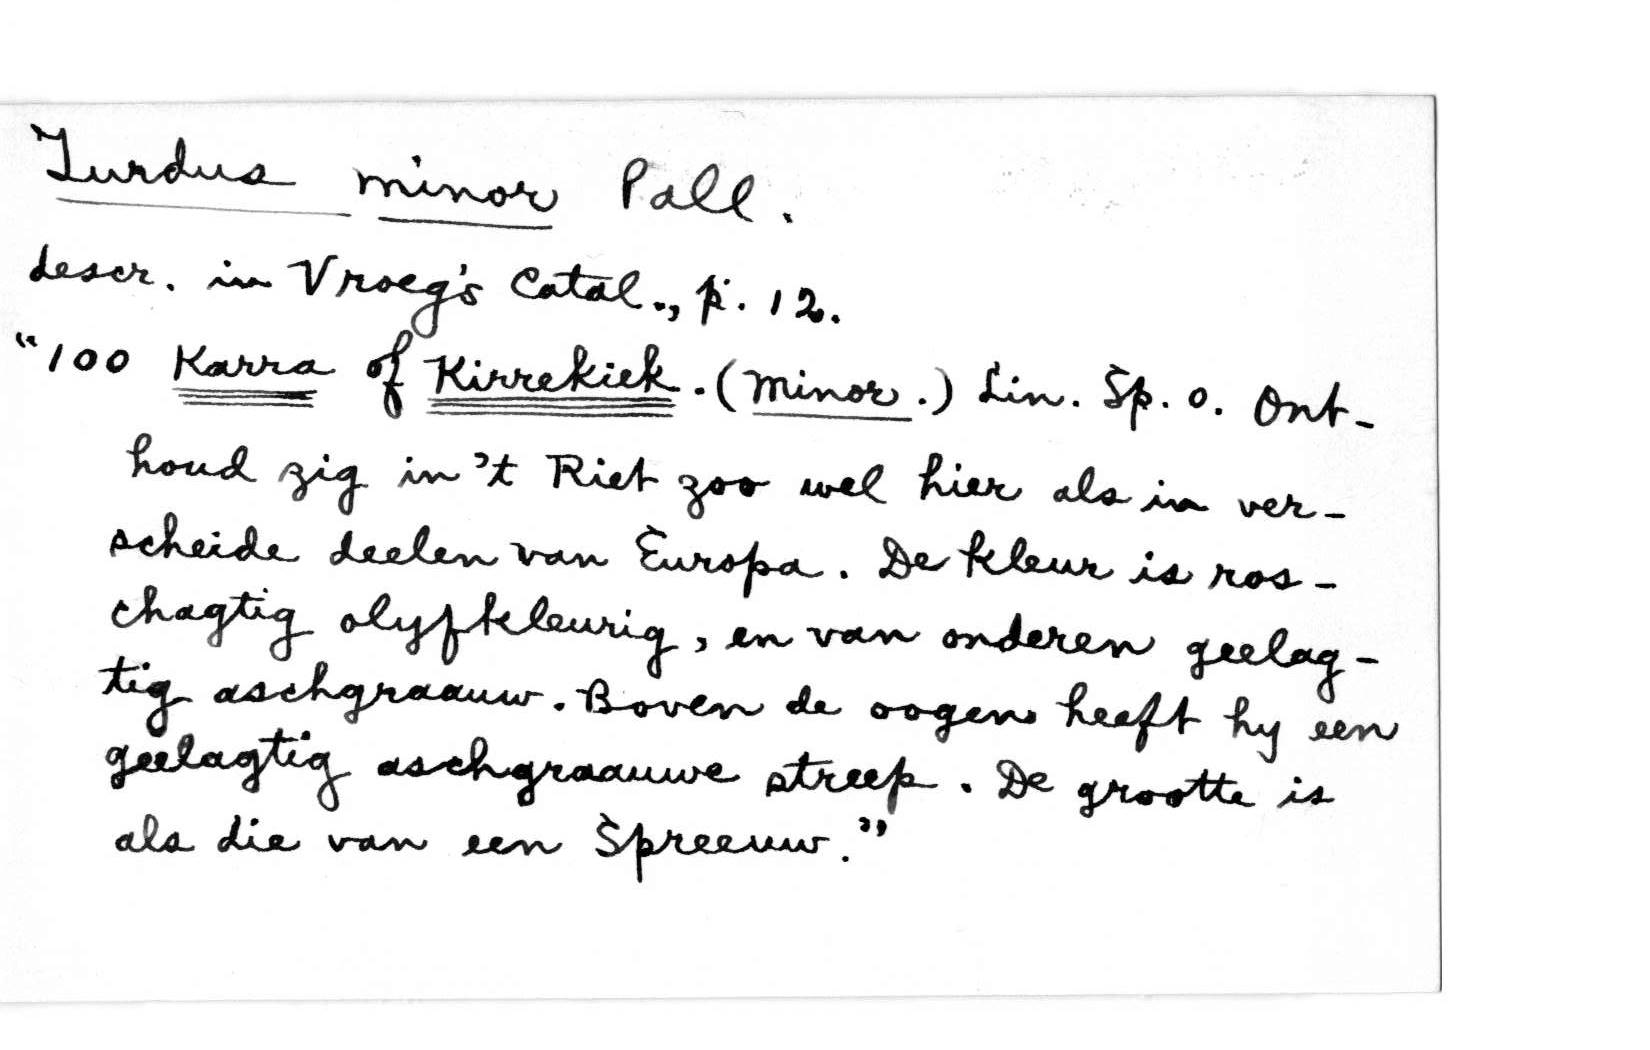 Turdus minor Pall.
descr. in Vroeg's Catal., p. 12.
"100 Karra of Kirrekiek. (Minor.) Lin. Sp. 0. Ont-
houd zig in 't Riet zoo wel hier als in ver-
scheide deelen van Europa. De kleur is ros-
chagtig olyfkleurig, en van onderen geelag-
tig aschgraauw. Boven de oogen heeft hy een
geelagtig aschgraauwe streep. De grootte is
als die van een Spreeuw."